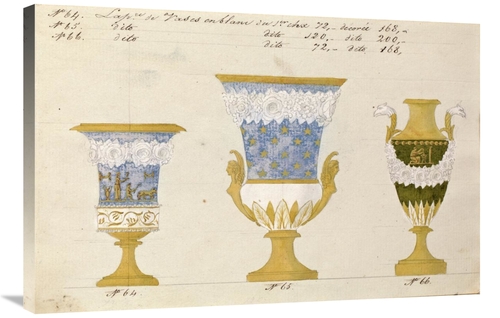 Nº 64. Lap.re de Vases en blanc du 1er chx 72,- décorée 168,-
Nº 65. dito dito 120,- dito 200,-
Nº 66. dito dito 72,- dito 168,
Nº 64
Nº 65
Nº 66.